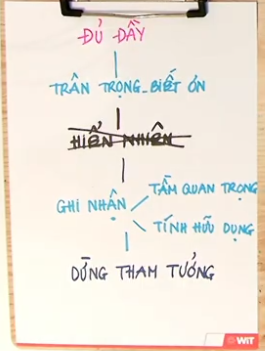 ĐỦ ĐẦY
TRÂN TRỌNG - BIẾT ƠN
HIỂN NHIÊN
GHI NHẬN
TẦM QUAN TRỌNG
TÍNH HỮU DỤNG
DỪNG THAM TƯỞNG
WIT